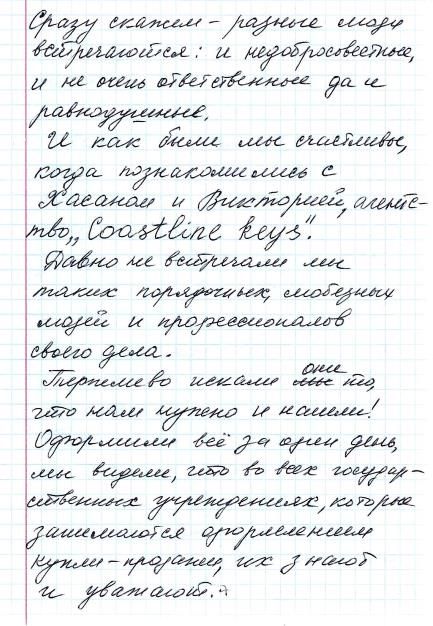 Сразу скажем - разные люди
встречаются: и недобросовестные,
и не очень ответственные да и
равнодушные.
И как были мы счастливы,
когда познакомились с
Хасаном и Викторией, агентс-
тво „Coastline keys".
Давно не встречали мы
таких порядочных, любезных
людей и профессионалов
своего дела.
Терпеливо искали они то,
что нам нужно и нашли!
Оформили всё за один день,
мы видели, что во всех государ-
ственных учреждениях, которые
занимаются оформлением
купли-продажи, их знают
и уважают.